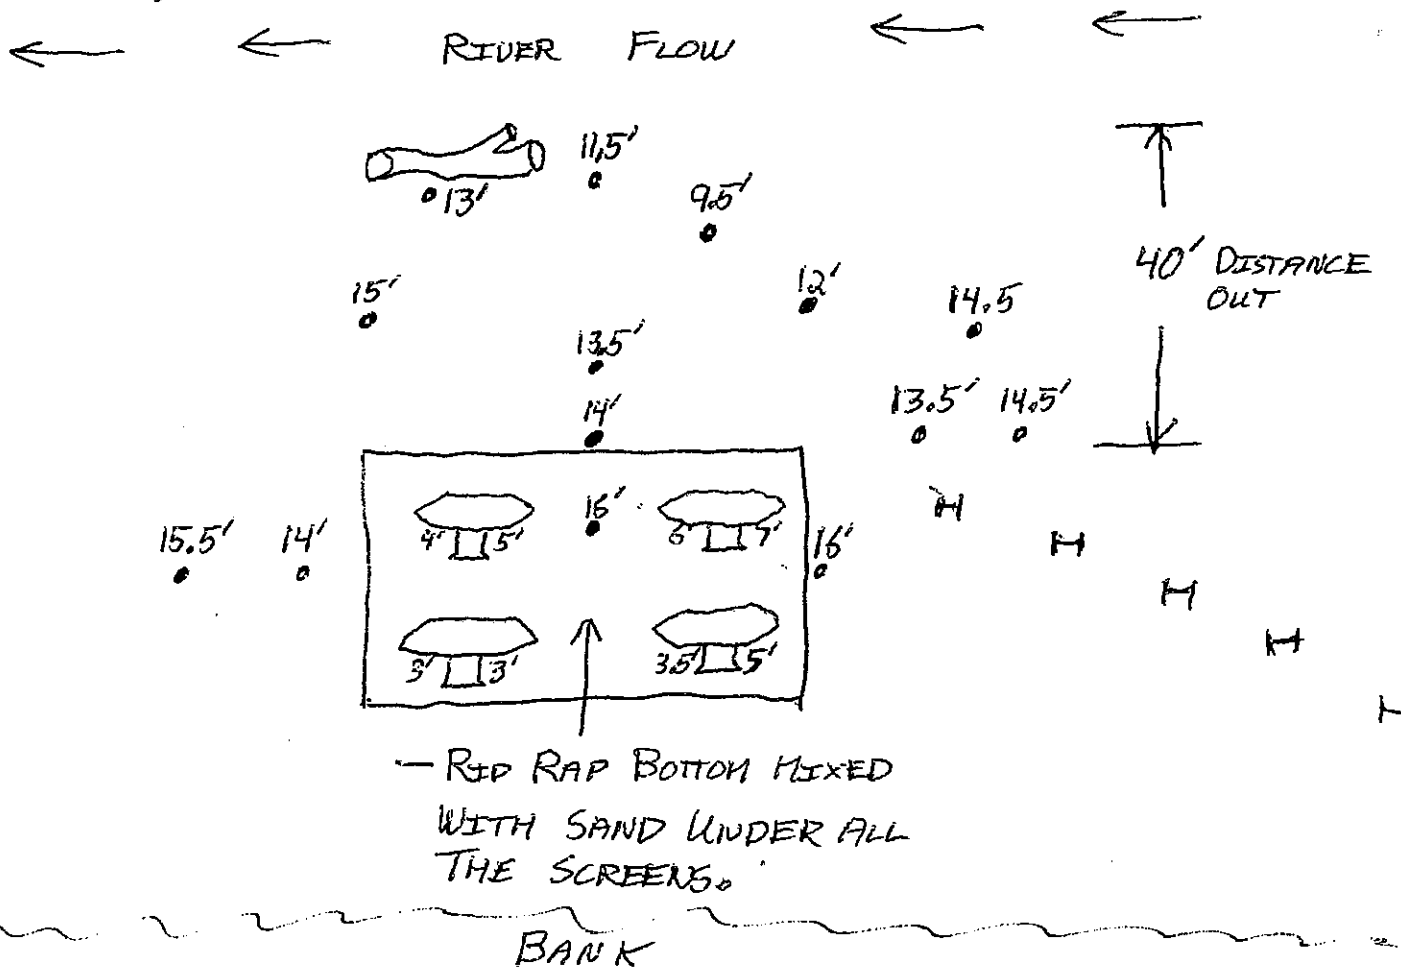 RIVER FLOW
11.5'
13'
9.5'
40' DISTANCE
OUT
15'
12'
14.5
13.5'
14'
13.5' 14.5'
15.5' 14'
4' 5'
16'
6' 7'
16'
3' 3'
3.5' 5'
— RIP RAP BOTTOM MIXED
WITH SAND UNDER ALL
THE SCREENS.
BANK